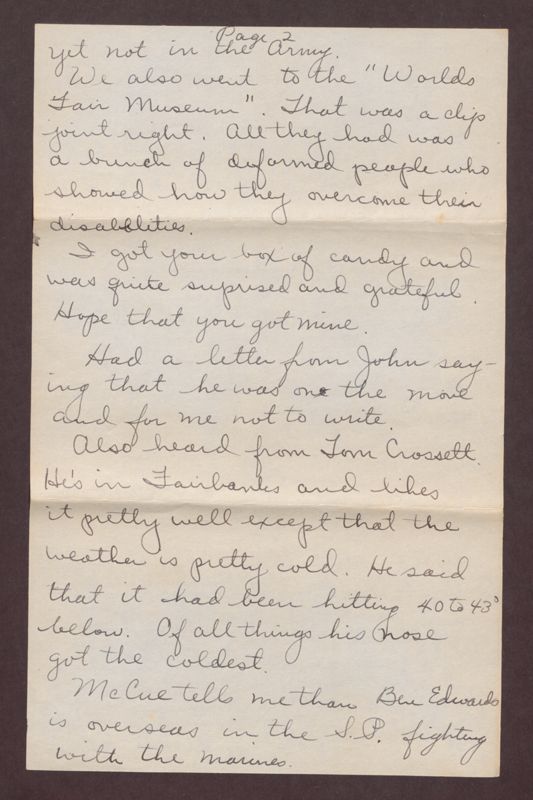 Page 2
yet not in the Army.
We also went to the "Worlds
Fair Museum". That was a clip
joint right. All they had was
a bunch of deformed people who
showed how they overcome their
disablities.
I got your box of candy and
was quite suprised and grateful.
Hope that you got mine.
Had a letter from John say-
ing that he was one the move
and for me not to write.
Also heard from Tom Crossett.
He's in Fairbanks and likes
it pretty well except that the
weather is pretty cold. He said
that it had been hitting 40 to 43°
below. Of all things his nose
got the coldest.
McCue tells me than Ben Edwards
is overseas in the S.P. fighting
with the marines.